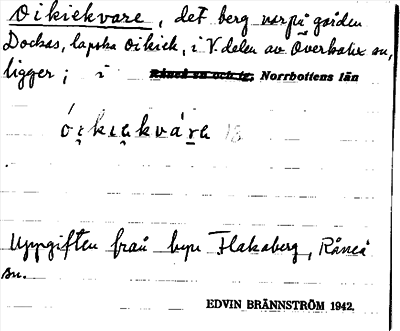 Oikiekvare, det berg varpå gården
Dockas, lapska Oikiek, i V. delen av Överkalix sn,
ligger; i Råneå sn och tg, Norrbottens län
óikiekvárе
Uppgiften från byn Flakaberg, Råneå
sn.
EDVIN BRÄNNSTRÖM 1942.